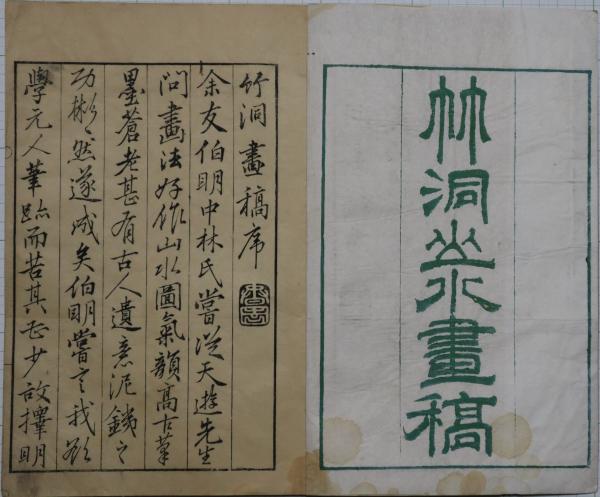 竹洞山水畫稿
竹洞畫稿序
余友伯明中林氏嘗從天遊先生
問畫法好作山水圖氣韻高古筆
墨蒼老甚有古人遺意泥錢之
功彬〻然遂成矣伯明嘗言我欲
學元人筆跡而苦其少故擇明